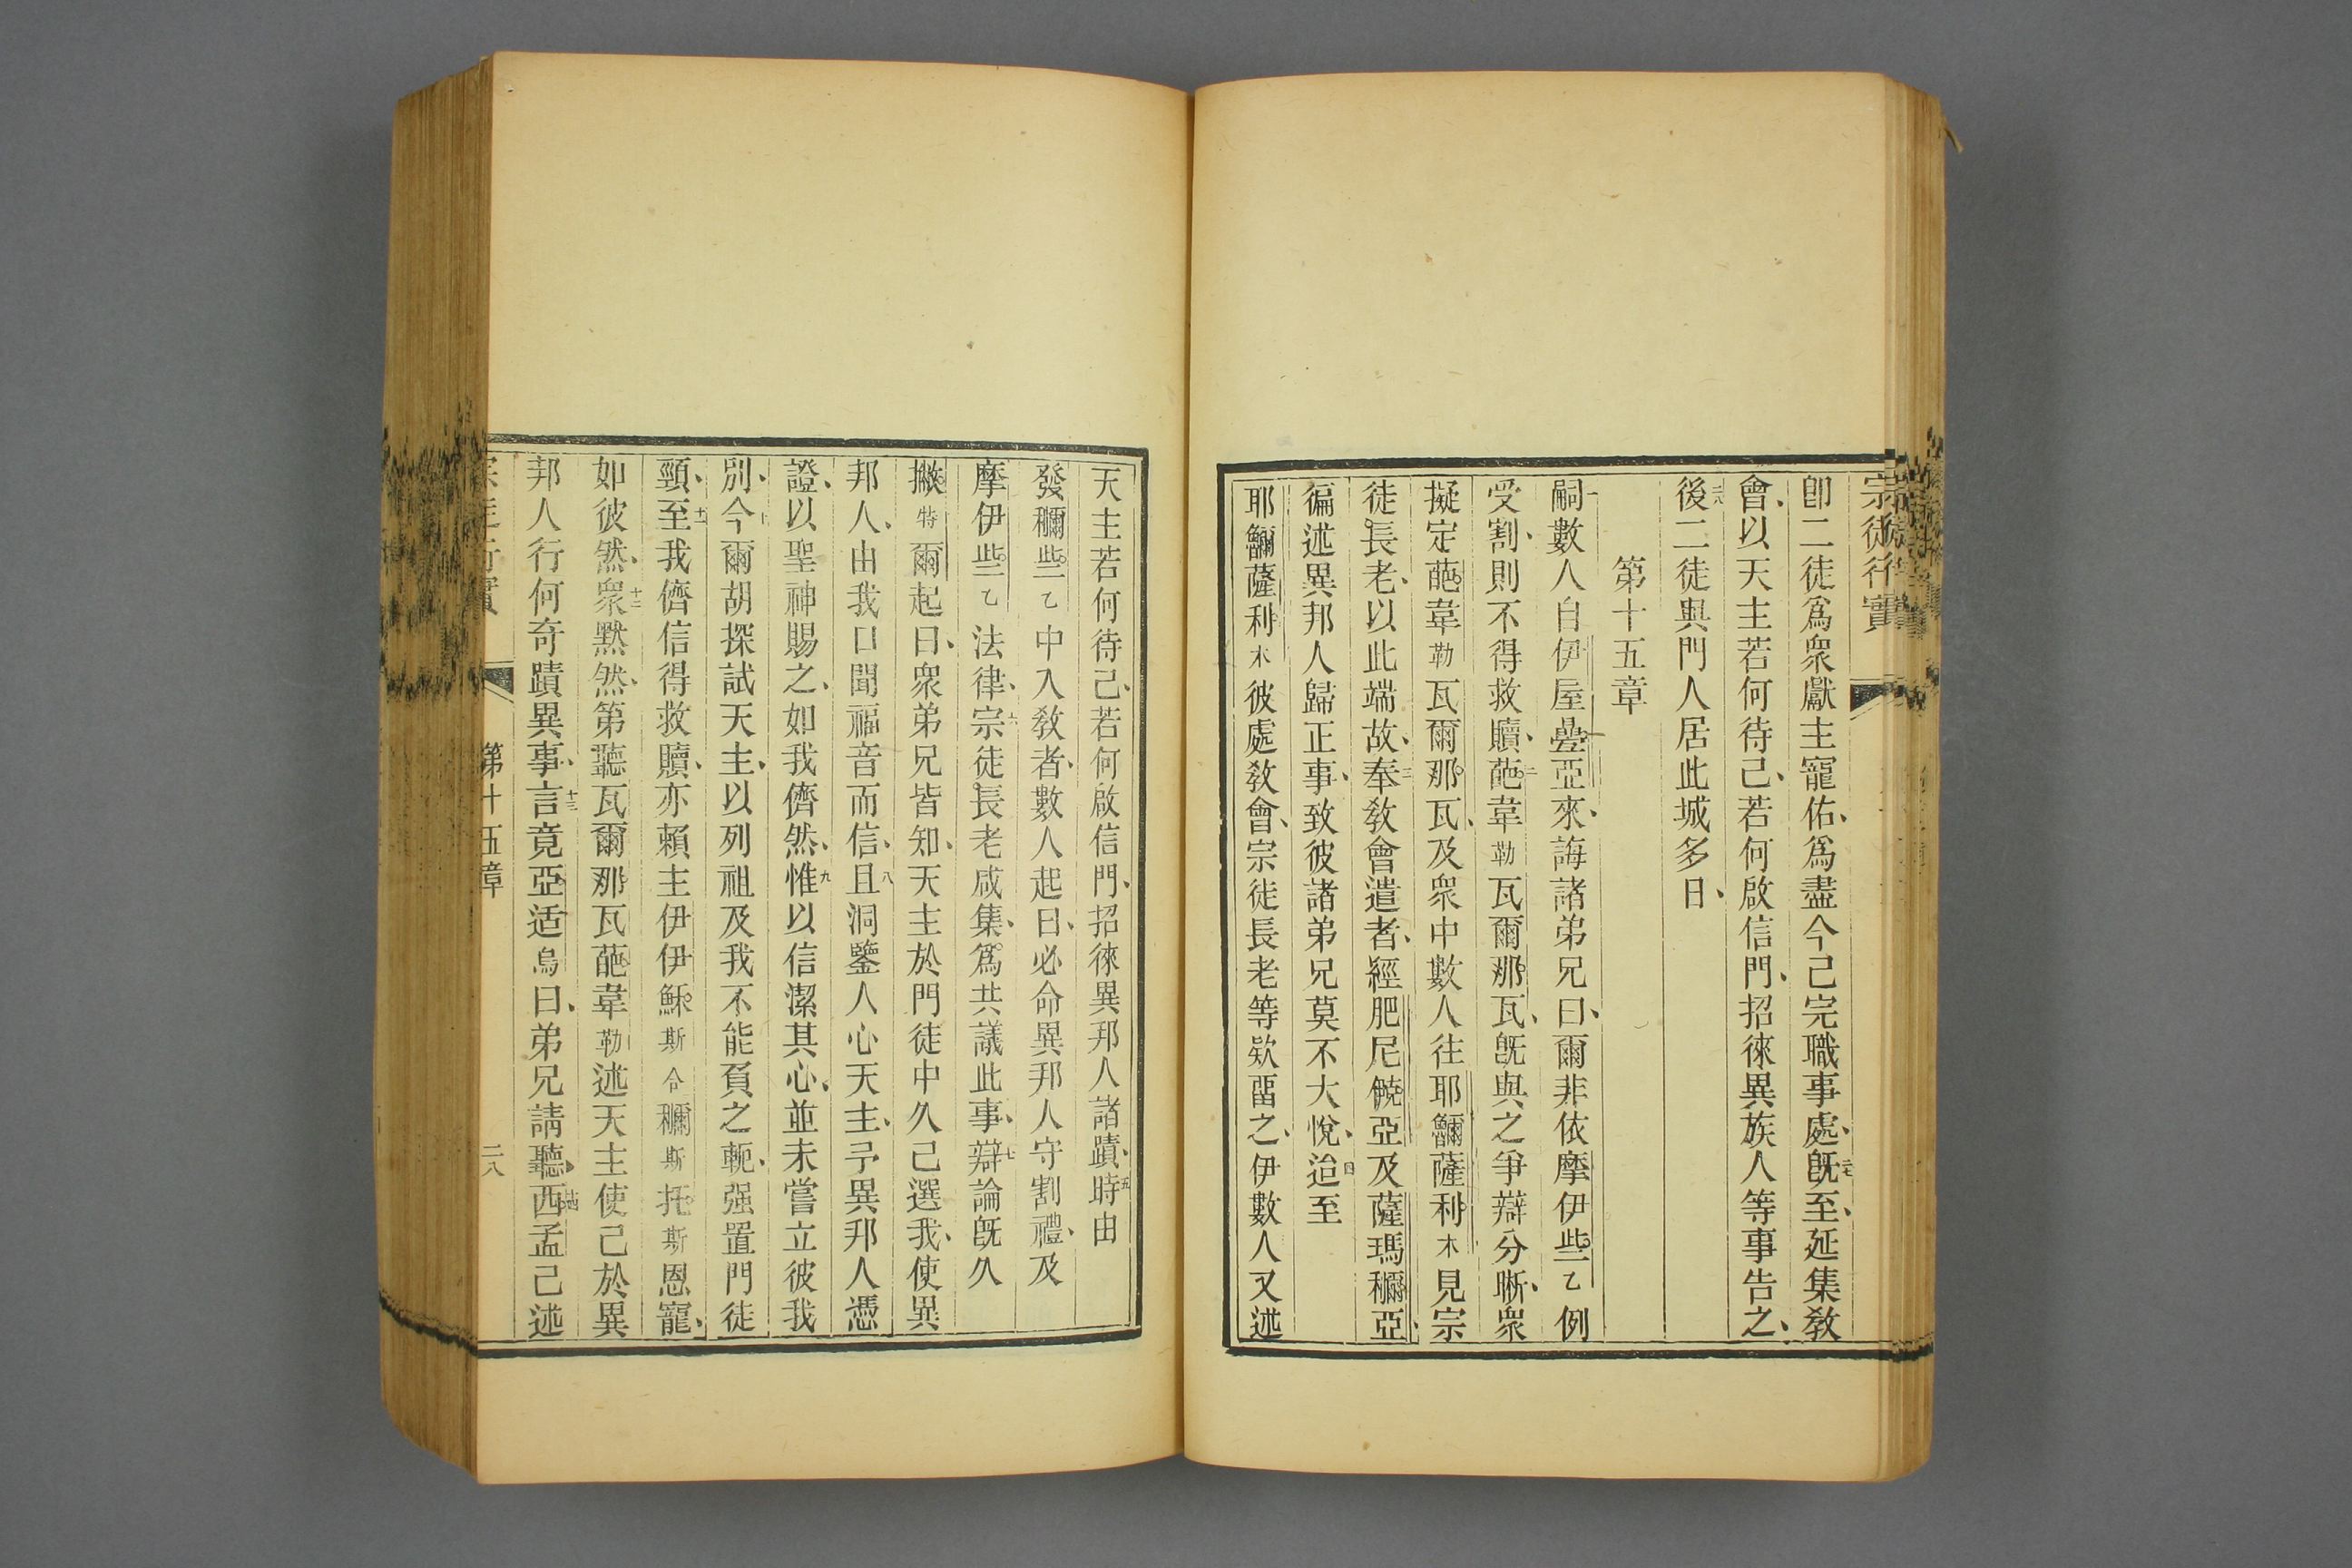 宗徒行實
卽二徒爲衆獻主寵佑、爲盡今己完職事處、二七旣至、延集敎
會、以天主若何待己、若何啟信門、招徠異族人等事告之、
二八後二徒與門人居此城多日、
第十五章
一嗣數人自伊屋疊亞來、誨諸弟兄曰、爾非依摩伊些乙例
受割、則不得救贖、二葩韋勒瓦爾那瓦、旣與之爭辯分晰、衆
擬定葩韋勒瓦爾那瓦、及衆中數人往耶㒪薩利木見宗
徒長老、以此端故、三奉敎會遣者、經肥尼𫗴亞及薩瑪穪亞、
徧述異邦人歸正事、致彼諸弟兄莫不大悅、四迨至
耶㒪薩利木彼處敎會、宗徒長老等欵畱之、伊數人又述
天主若何待己、若何啟信門、招徠異邦人諸蹟、五時由
發穪些乙中入敎者、數人起曰、必命異邦人守割禮、及
摩伊些乙法律、六宗徒長老咸集、爲共議此事、七辯論旣久
撇特爾起曰、衆弟兄皆知、天主於門徒中久己選我、使異
邦人、由我口聞福音而信、八且洞鑒人心天主、予異邦人憑
證、以聖神賜之、如我儕然、九惟以信潔其心、並未嘗立彼我
別、十今爾胡探試天主、以列祖及我不能負之軛、强置門徒
頸、十一至我儕信得救贖、亦賴主伊伊穌斯合穪斯托斯恩寵、
如彼然、十二衆黙然、第聽瓦爾那瓦葩韋勒述天主使己於異
邦人行何奇蹟異事、十三言竟亞适烏曰、弟兄請聽、十四西孟己述
第十五章
二八